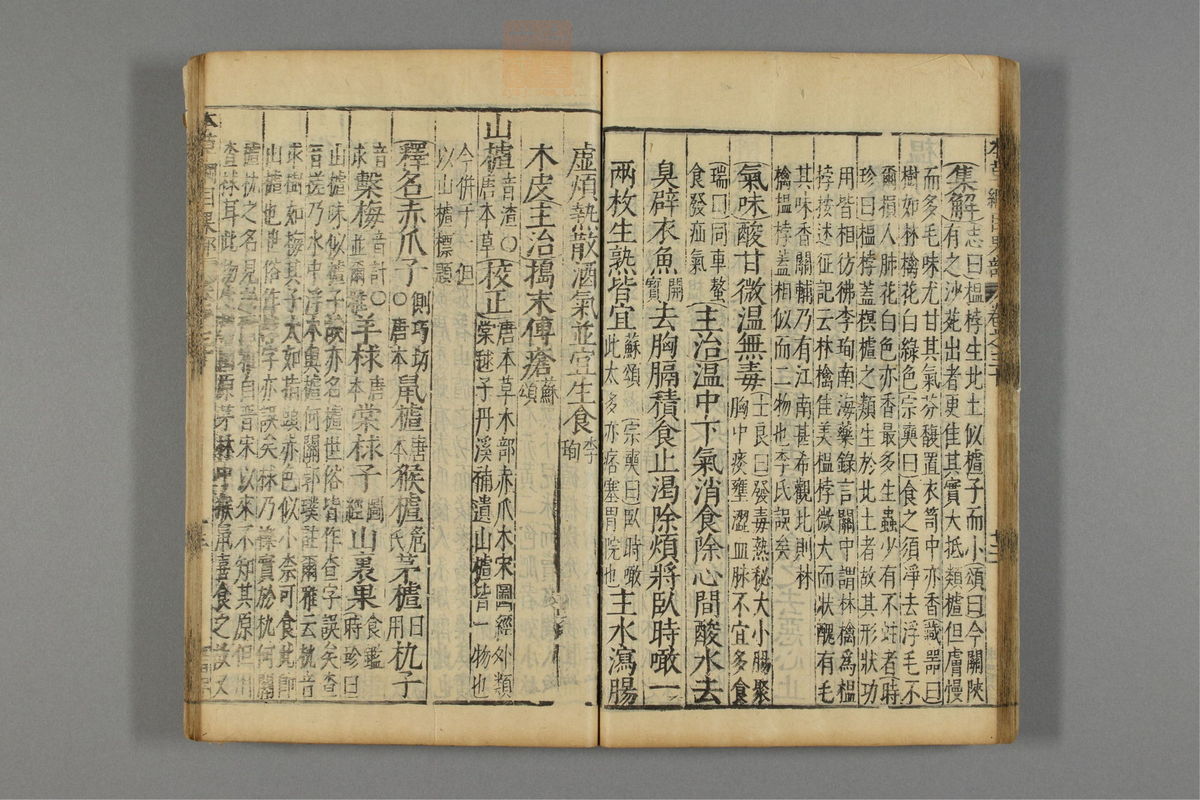 集解志曰榲桲生北土似樝子而小頌曰今關陝
有之沙苑出者更佳其實大抵類樝但膚慢
而多毛味尤甘其氣芬馥置衣笥中亦香藏器曰
樹如林檎花白綠色宗奭曰食之須淨去浮毛不
爾損人肺花白色亦香最多生蟲少有不蛀者時
珍曰榲桲蓋榠樝之類生於北土者故其形狀功
用皆相彷彿李珣南海藥錄言關中謂林檎爲榲
桲按述征記云林檎佳美榲桲微大而狀醜有毛
其味香關輔乃有江南甚希觀此則林
檎榲桲蓋相似而二物也李氏誤矣
氣味酸甘微温無毒士良曰發毒熱秘大小腸聚
胸中痰壅澀血脉不宜多食
瑞曰同車螯
食發疝氣
主治温中下氣消食除心間酸水去
臭辟衣魚開寶去胸膈積食止渴除煩將臥時噉一
兩枚生熟皆宜蘇頌宗奭曰臥時噉
此太多亦痞塞胃脘也主水瀉腸
虛煩熱散酒氣並宜生食李珣
木皮主治搗末傅瘡蘇頌
山樝音渣○唐本草校正唐本草木部赤爪木宋圖經外類
棠梂子丹溪補遺山樝皆一物也
今併于一但
以山樝標題
釋名赤爪子側巧切○唐本鼠樝唐本猴樝危氏茅樝日用杭子
音求繫梅音計○並爾雅羊梂唐本棠梂子圖經山裏果食鑑時珍曰
山樝味似樝子故亦名樝世俗皆作查字誤矣查
音槎乃水中浮木與樝何關郭璞註爾雅云杭音
求樹如梅其子大如指頭赤色似小柰可食此即
山樝也世俗作梂字亦誤矣梂乃櫟實於杭何關
樝杭之名見爾雅自晋宋以來不知其原但用
查梂耳此物生於山原茅林中猴鼠喜食之故又